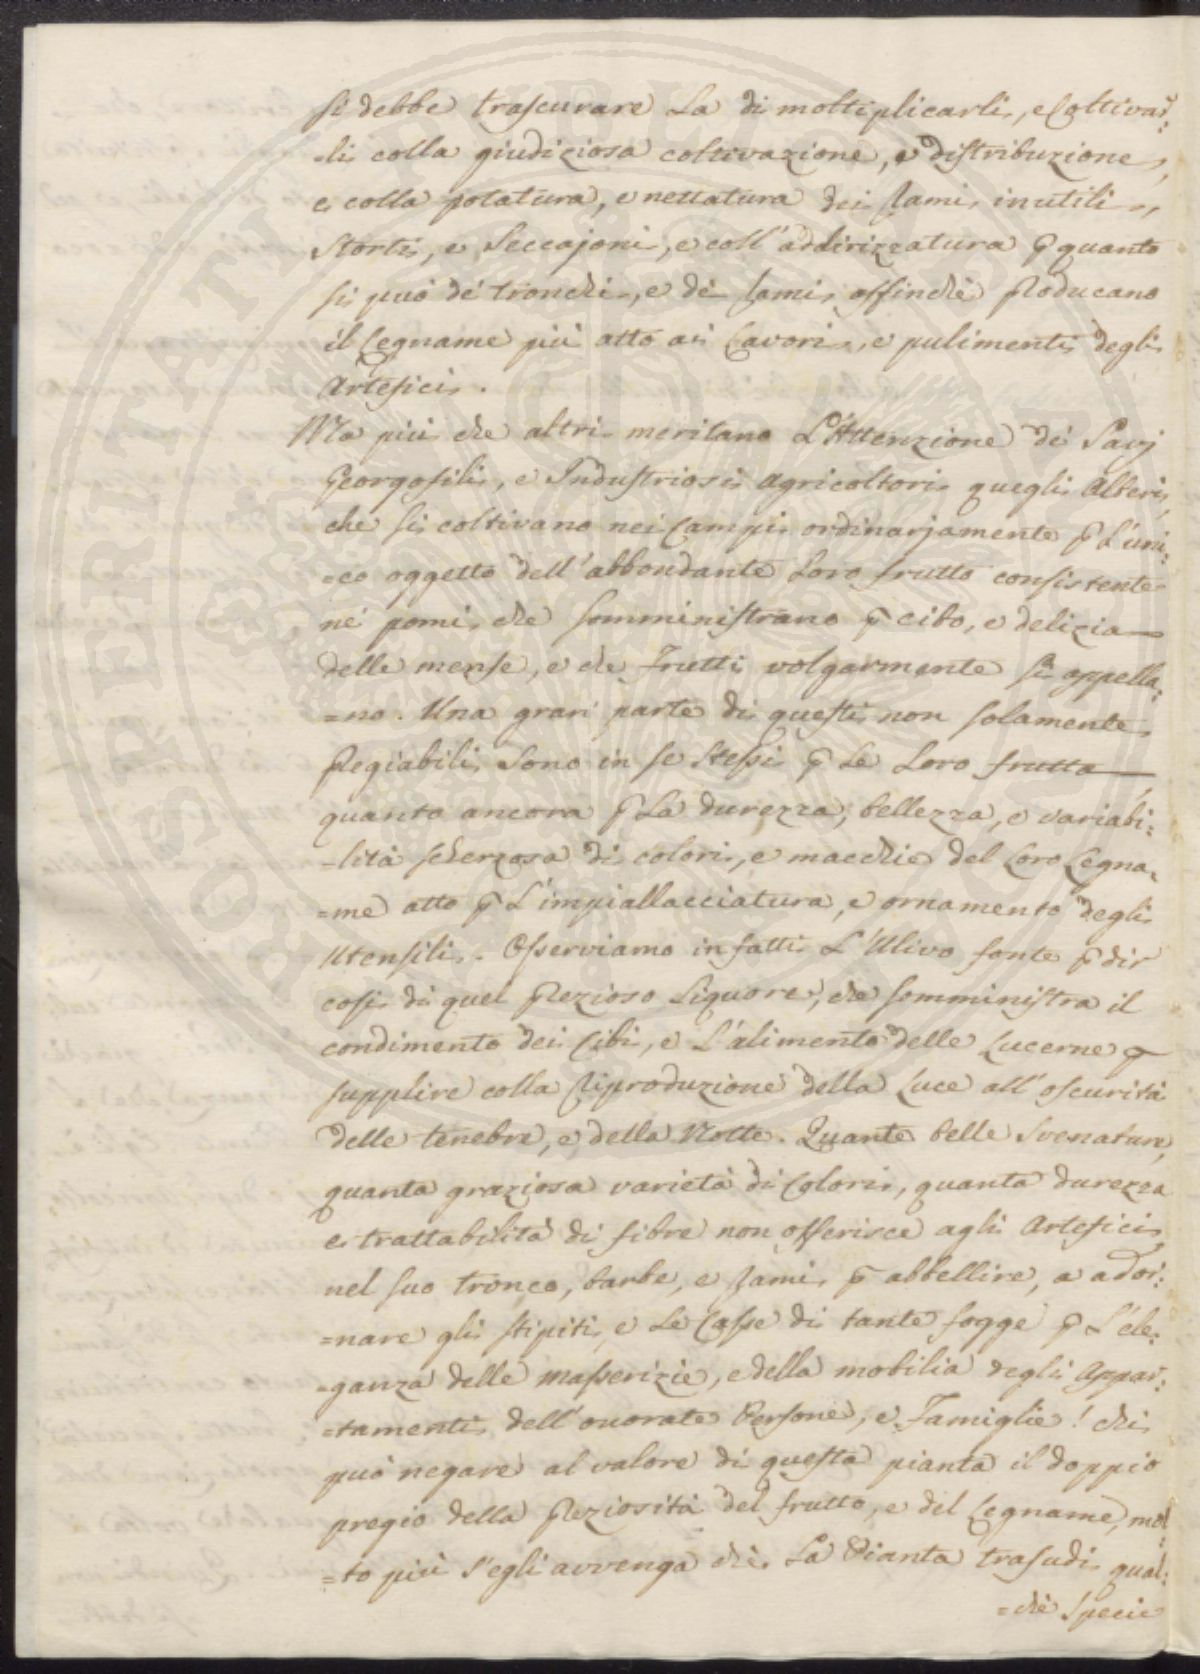 si debbe trascurare La di moltiplicarli, e Coltivar=
=li colla giudiziosa coltivazione, e distribuzione,
e colla potatura, e nettatura dei Rami inutili,
Storti, e Seccajoni, e coll'addirizzatura p quanto
si può de' tronchi, e de' Rami, affinchè Producano
il Legname più atto ai Lavori, e pulimenti degli
Artefici.
Ma più che altri meritano L'Attenzione de' Savj
Georgofili, e Industriosi Agricoltori quegli Alberi,
che si coltivano nei Campi ordinarjamente p L'uni=
=co oggetto dell'abbondante Loro frutto consistente
ne' pomi, che somministrano p cibo, e delizia
delle mense, e che Frutti volgarmente si appella=
=no. Una gran parte di questi non solamente
Pregiabili Sono in se Stessi p Le Loro frutta
quanto ancora p La durezza, bellezza, e variabi=
=lità scherzosa di colori, e macchie del Loro Legna=
=me atto p L'impiallacciatura, e ornamento degli
Utensili. Osserviamo infatti L'Ulivo fonte p dir
così di quel Prezioso Liquore, che somministra il
condimento dei Cibi, e L'alimento delle Lucerne p
supplire colla Riproduzione della Luce all'oscurità
delle tenebre, e della Notte. Quante belle Svenature,
quanta graziosa varietà di Colori, quanta durezza
e trattabilità di fibre non offerisce agli Artefici
nel suo tronco, barbe, e Rami p abbellire, a ador=
=nare gli stipiti, e Le Casse di tante fogge p L'ele=
=ganza delle masserizie, e della mobilia degli Appar=
=tamenti dell'onorate Persone, e Famiglie! Chi
può negare al valore di questa pianta il doppio
pregio della Preziosità del frutto, e del Legname, mol=
=to più s'egli avvenga che La Pianta trasudi qual=
=che Specie